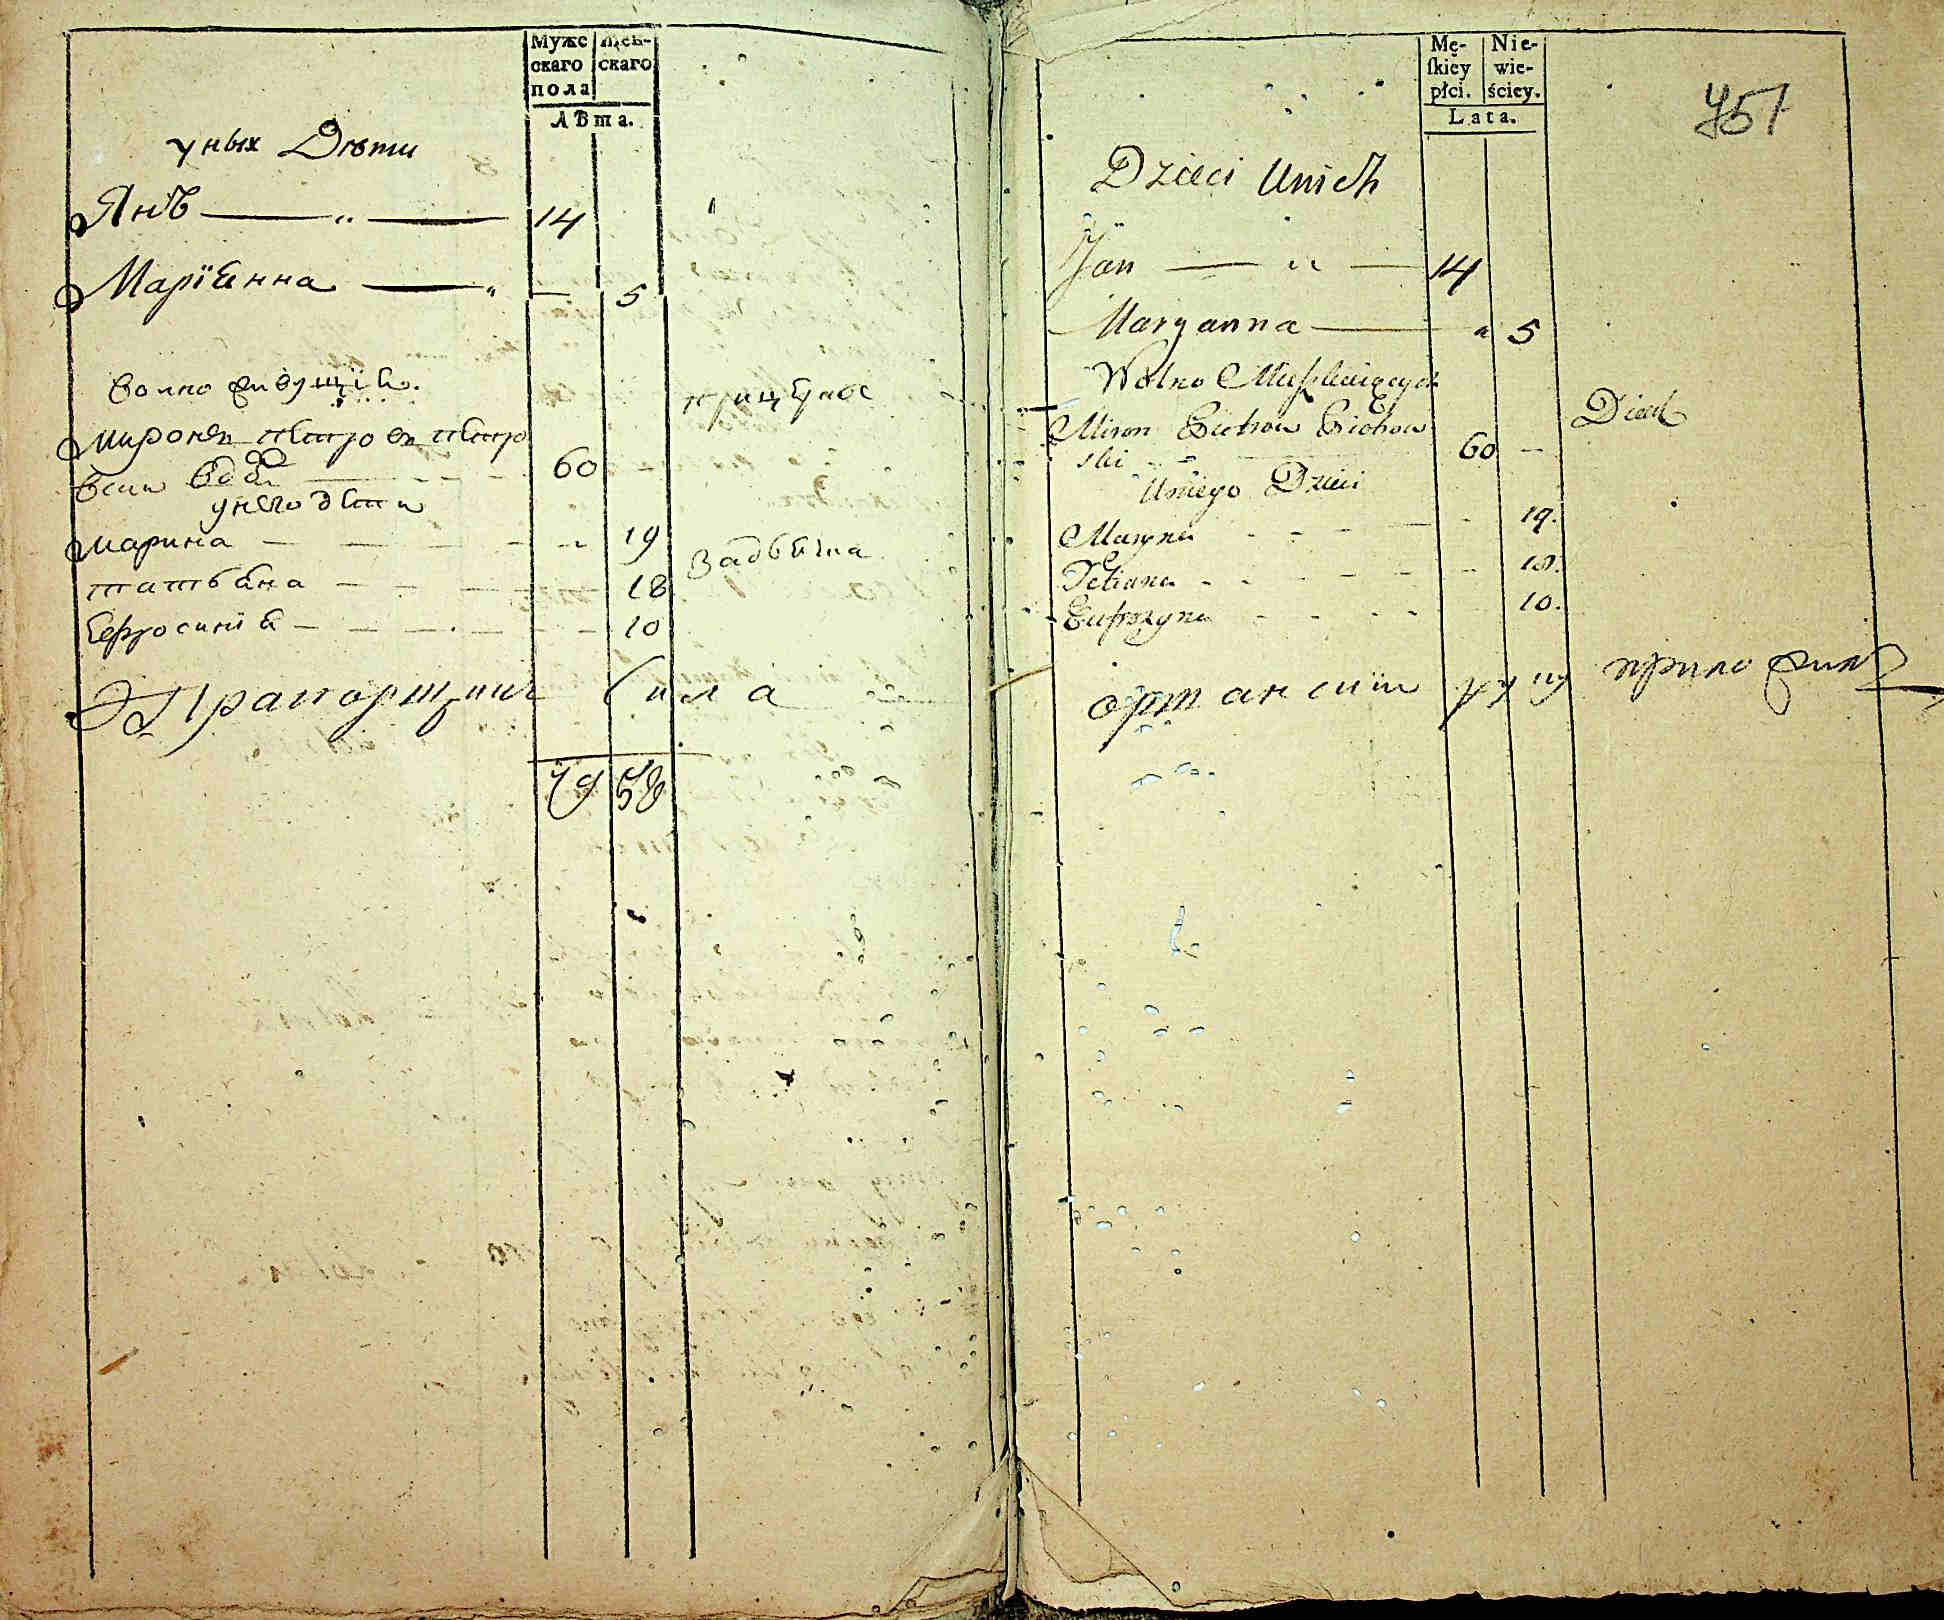 Муже
скаго
пола
жен-
скаго
Лѣта.
уных Дѣти
Янъ 14
Маріанна 5
волно живущія
Миронъ Петровъ Петро
вскии вдов 60
унего дети
Марина 19
татьяна 18
Ефросинія 10
Прапорщик
79 58
Mę-
ſkiey
płci.
Nie-
wie-
ściey.
Lata.
457
Dzieci Unich
Jan 14
Maryanna 5
Wolno Mieszkaiących
Miron Piotrow Piotrow
ski 60
Uniego Dzieci
Maryna 19.
Tetiana 18.
Eufrozyna 10.
руку приложил